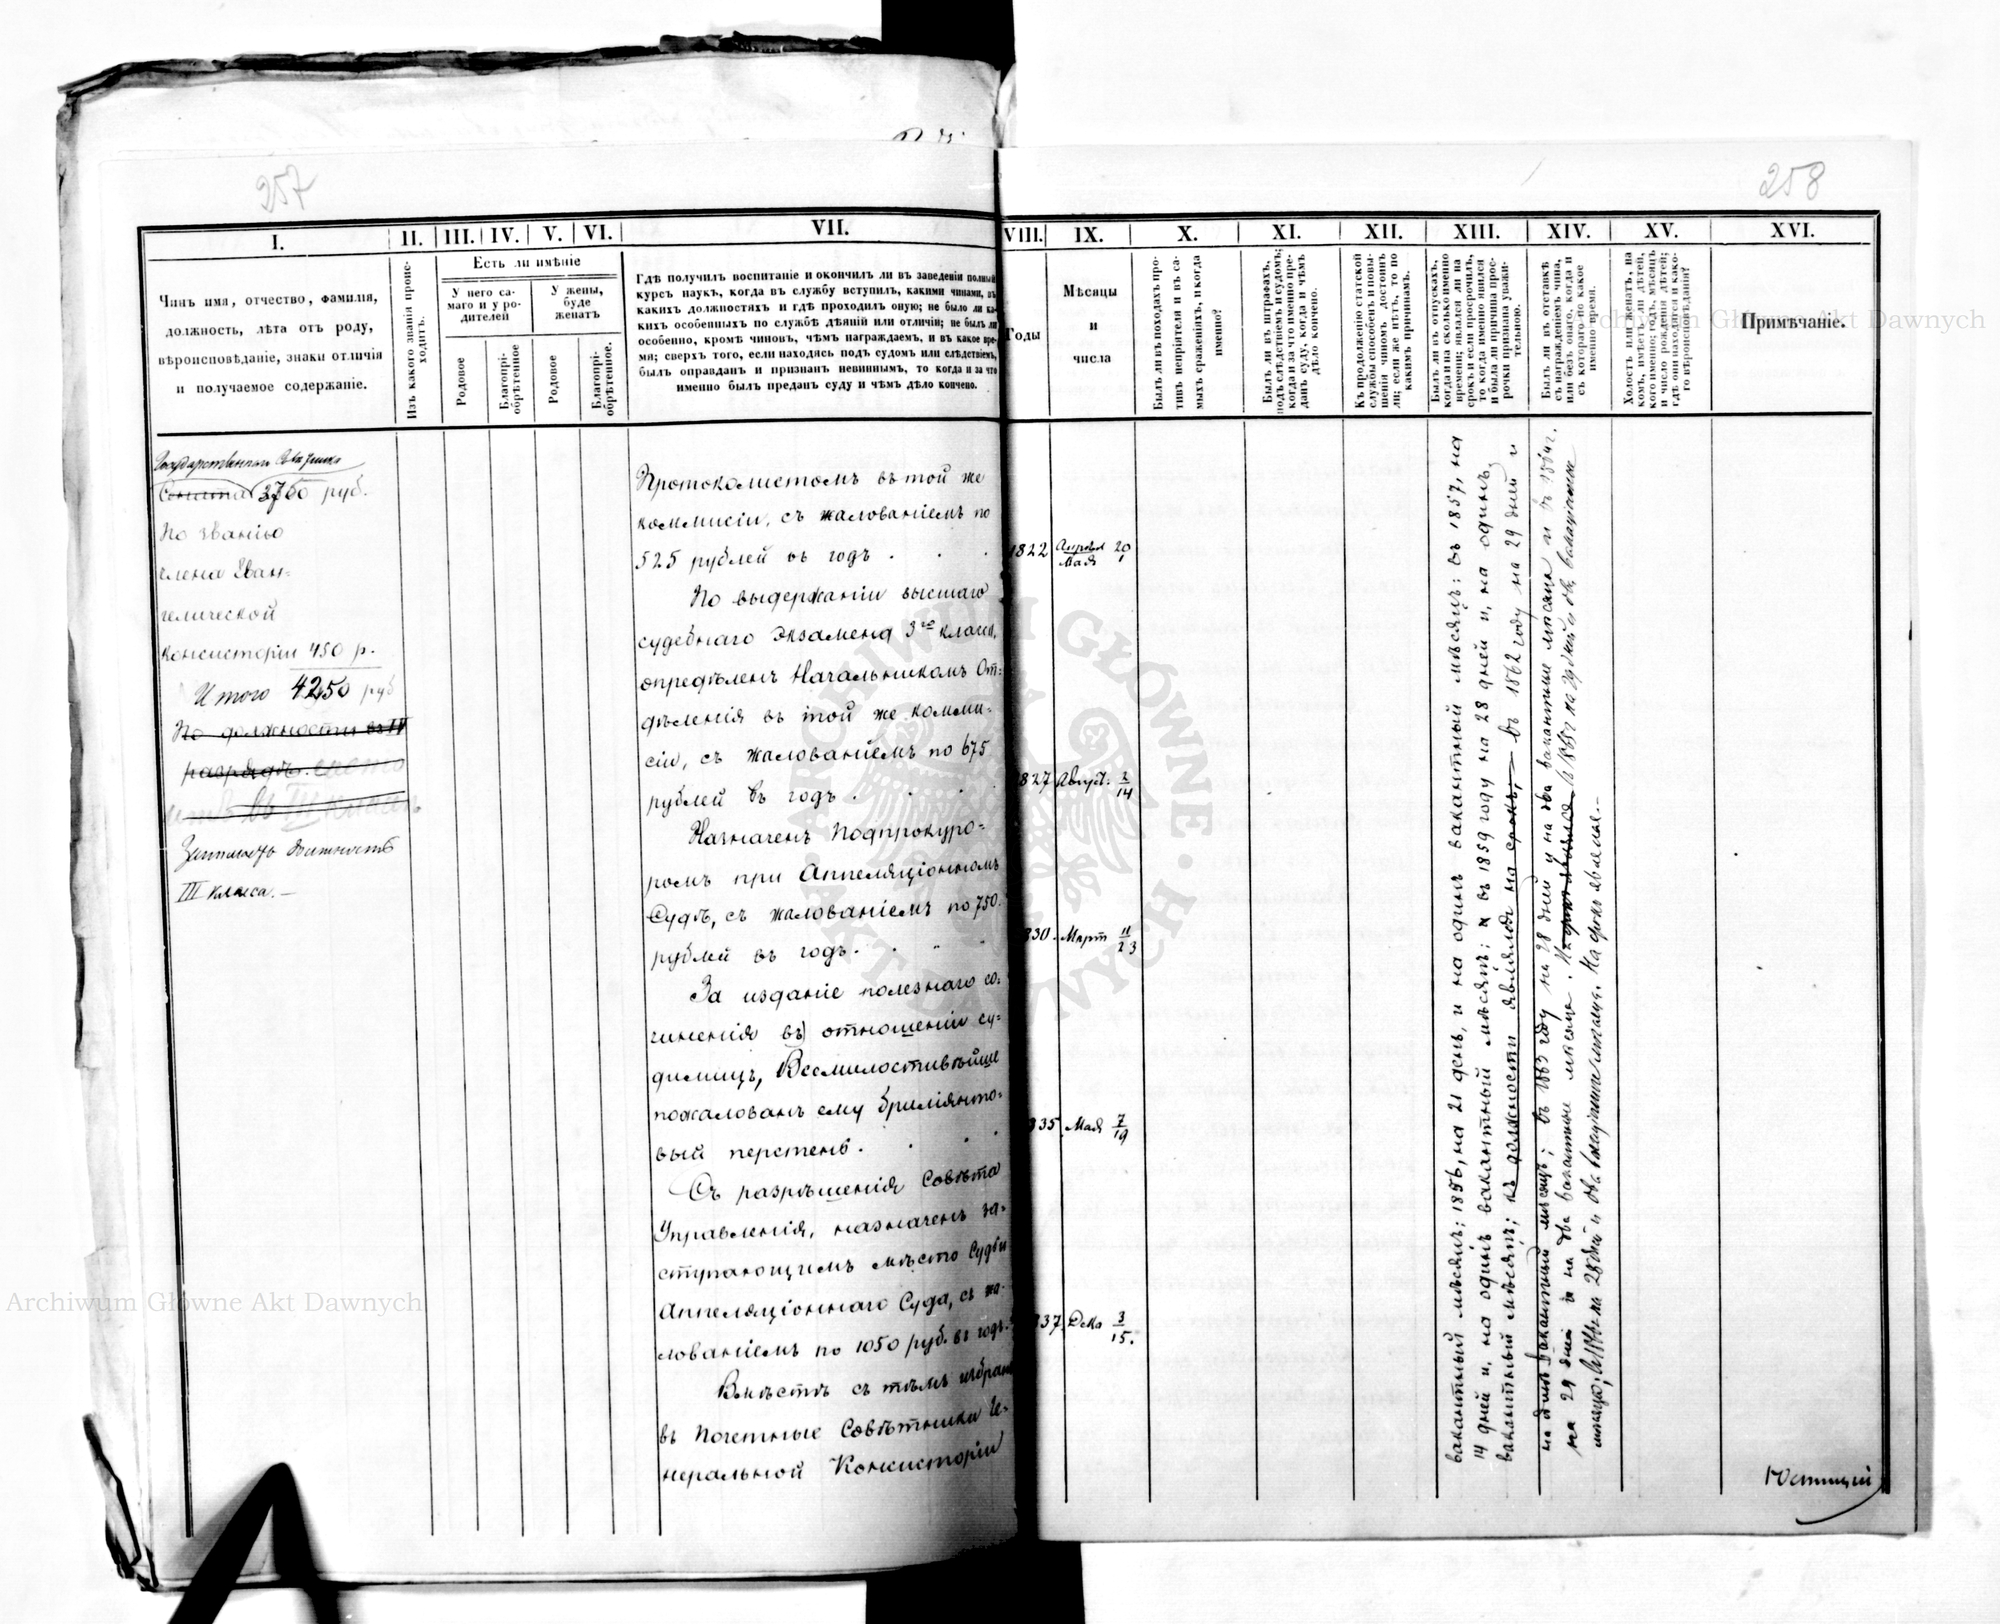 257
258
I.
II.
III.
IV.
V.
VI.
VII.
VIII.
IX.
X.
XI.
XII.
XIII.
XIV.
XV.
XVI.
Чинъ имя, отчество, фамилія,
должность, лѣта отъ роду,
вѣроисповѣданіе, знаки отличія
и получаемое содержаніе.
Изъ какого званія проис-
ходитъ.
Есть ли имѣніе
У него са-
маго и у ро-
дителей
У жены,
буде
женатъ
Родовое
Благопрі-
обрѣтенное
Родовое
Благопрі-
обрѣтенное.
Гдѣ получилъ воспитаніе и окончилъ ли въ заведеніи полный
курсъ наукъ, когда въ службу вступилъ, какими чинами, въ
какихъ должностяхъ и гдѣ проходилъ оную; не было ли ка-
кихъ особенныхъ по службѣ дѣяній или отличій; не былъ ли
особенно, кромѣ чиновъ, чѣмъ награждаемъ, и въ какое вре-
мя; сверхъ того, если находясь подъ судомъ или слѣдствіемъ,
былъ оправданъ и признанъ невиннымъ, то когда и за что
именно былъ преданъ суду и чѣмъ дѣло кончено.
Годы
Мѣсяцы
и
числа
Былъ ли въ походахъ про-
тивъ непріятеля и въ са-
мыхъ сраженіяхъ, и когда
именно?
Былъ ли въ штрафахъ,
подъ слѣдствіемъ и судомъ;
когда и за что именно пре-
данъ суду, когда и чѣмъ
дѣло кончено.
Къ продолженію статской
службы способенъ и повы-
шенія чиномъ достоинъ
ли; если же нѣтъ, то по
какимъ причинамъ.
Былъ ли въ отпускахъ,
когда и на сколько именно
времени; являлся ли на
срокъ и если просрочилъ,
то когда именно явился
и была ли причина прос-
рочки признана уважи-
тельною.
Былъ ли въ отставкѣ
съ награжденіемъ чина,
или безъ онаго, когда и
съ котораго по какое
именно время.
Холостъ или женатъ, на
комъ, имѣетъ ли дѣтей,
кого именно; годъ, мѣсяцъ
и число рожденія дѣтей;
гдѣ они находятся и како-
го вѣроисповѣданія?
Примѣчаніе.
Сената 3750 руб.
По званію
члена Еван-
гелической
Консисторіи 450 р.
Итого 4250 руб
По должности въ IV
разрядѣ.
въ III классѣ
III класса.—
Протоколистомъ въ той же
коммисіи, съ жалованіемъ по
525 рублей въ годъ . . .
1822 Апрѣля 20
Мая 1
По выдержаніи высшаго
судебнаго экзамена 3го класса,
опредѣленъ Начальникомъ От-
дѣленія въ той же комми-
сіи, съ жалованіемъ по 675
рублей въ годъ . . . .
827 Август. 2/14
Назначенъ Подпрокуро-
ромъ при Аппеляціонномъ
Судѣ, съ жалованіемъ по 750
рублей въ годъ. . . .
830. Март 11/23
За изданіе полезнаго со-
чиненія въ отношеніи су-
димицъ, Всемилостивѣйше
пожалованъ ему брилліянто-
вый перстень. . . .
835. Мая 7/19
Съ разрѣшенія Совѣта
Управленія, назначенъ за-
ступающимъ мѣсто Судьи
Аппеляціоннаго Суда, съ жа-
лованіемъ по 1050 руб. въ годъ.
837. Дека 3/15.
Вмѣстѣ съ тѣмъ избранъ
въ Почетные Совѣтники Ге-
неральной Консисторіи
вакантный мѣсяцъ; 1856, на 21 день, и на одинъ вакантный мѣсяцъ: въ 1857, на
14 дней и, на одинъ вакантный мѣсяцъ: и въ 1859 году на 28 дней и, на одинъ,
вакантный мѣсяцъ; къ должности являлся на срокъ, — въ 1862 году на 29 дней и
на одинъ вакантный мѣсяцъ; въ 1863 году на 28 дней и на два вакантные мѣсяца и въ 1864 г.
на 29 дней и на два вакантные мѣсяца.
Юстиціи
Archiwum Główne Akt Dawnych
Archiwum Główne Akt Dawnych
ARCHIWUM GŁÓWNE · AKT DAWNYCH ·